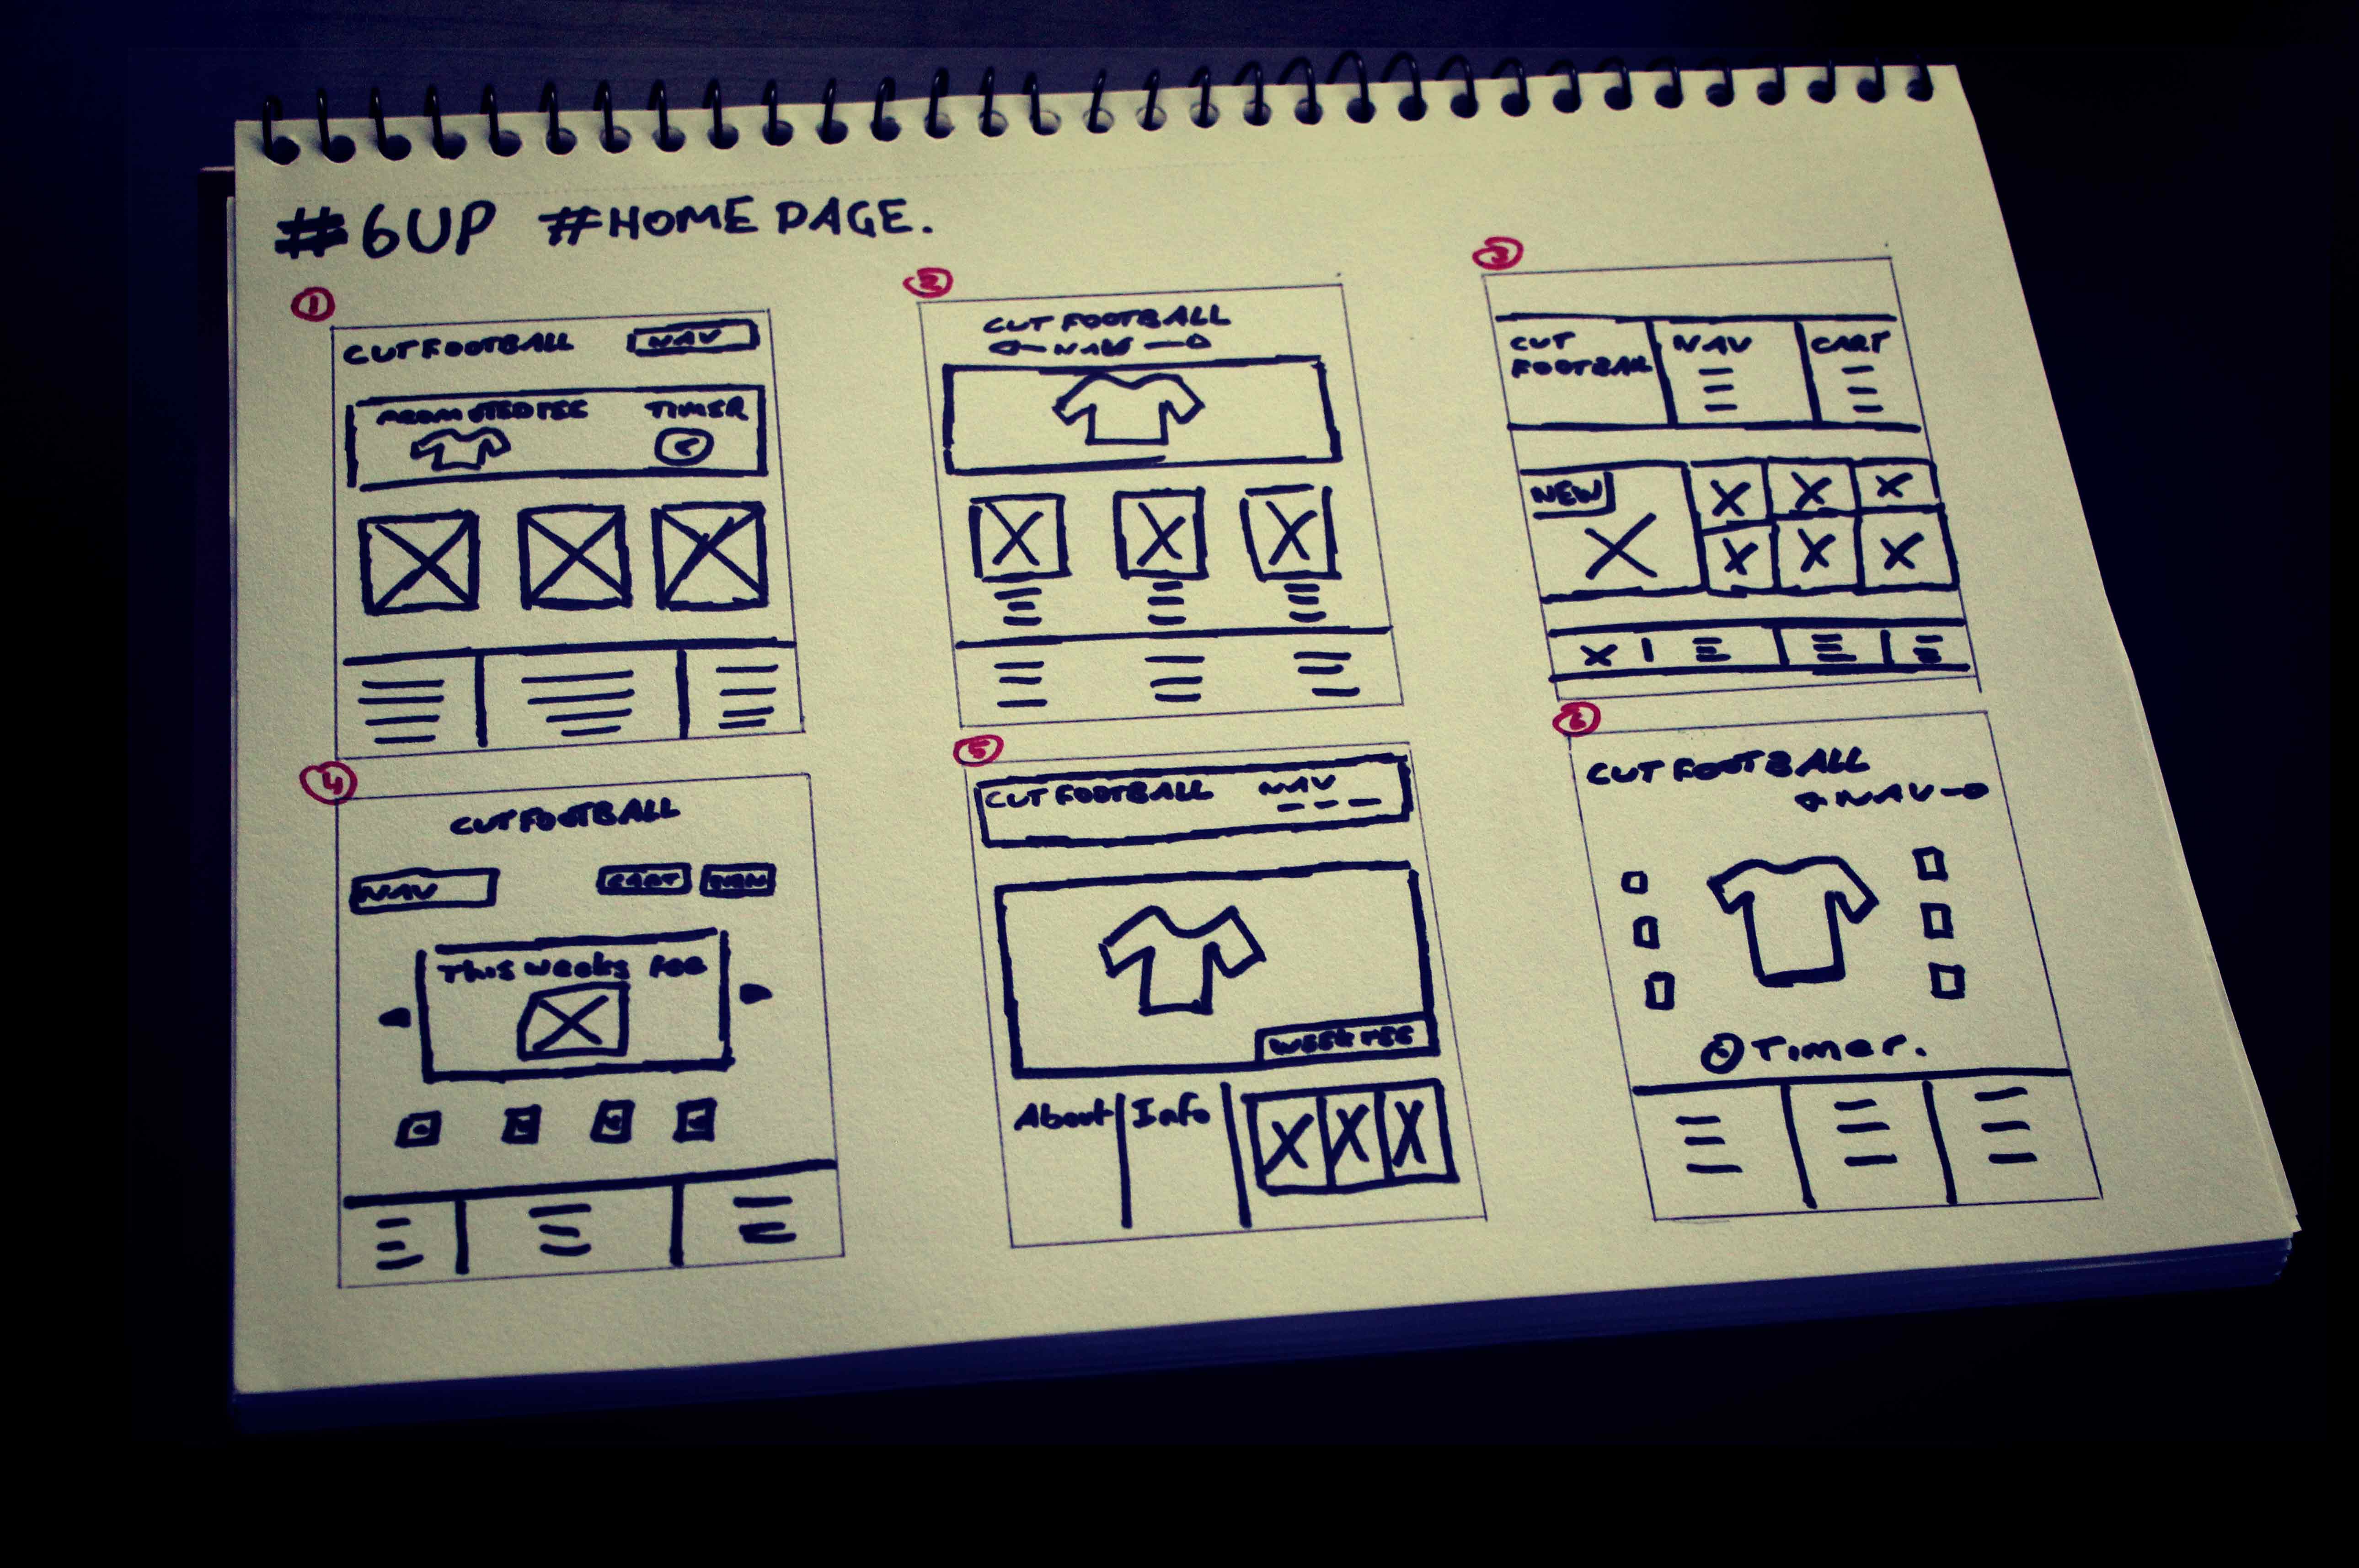 #6UP #HOME PAGE.
1
CUT FOOTBALL NAV
PROMOTED TEE TIMER
2
CUT FOOTBALL
NAV
3
CUT
FOOTBALL
NAV
CART
NEW
4
CUT FOOTBALL
NAV
CART
This weeks Tee
5
CUT FOOTBALL NAV
WEEK TEE
About
Info
6
CUT FOOTBALL
NAV
Timer.